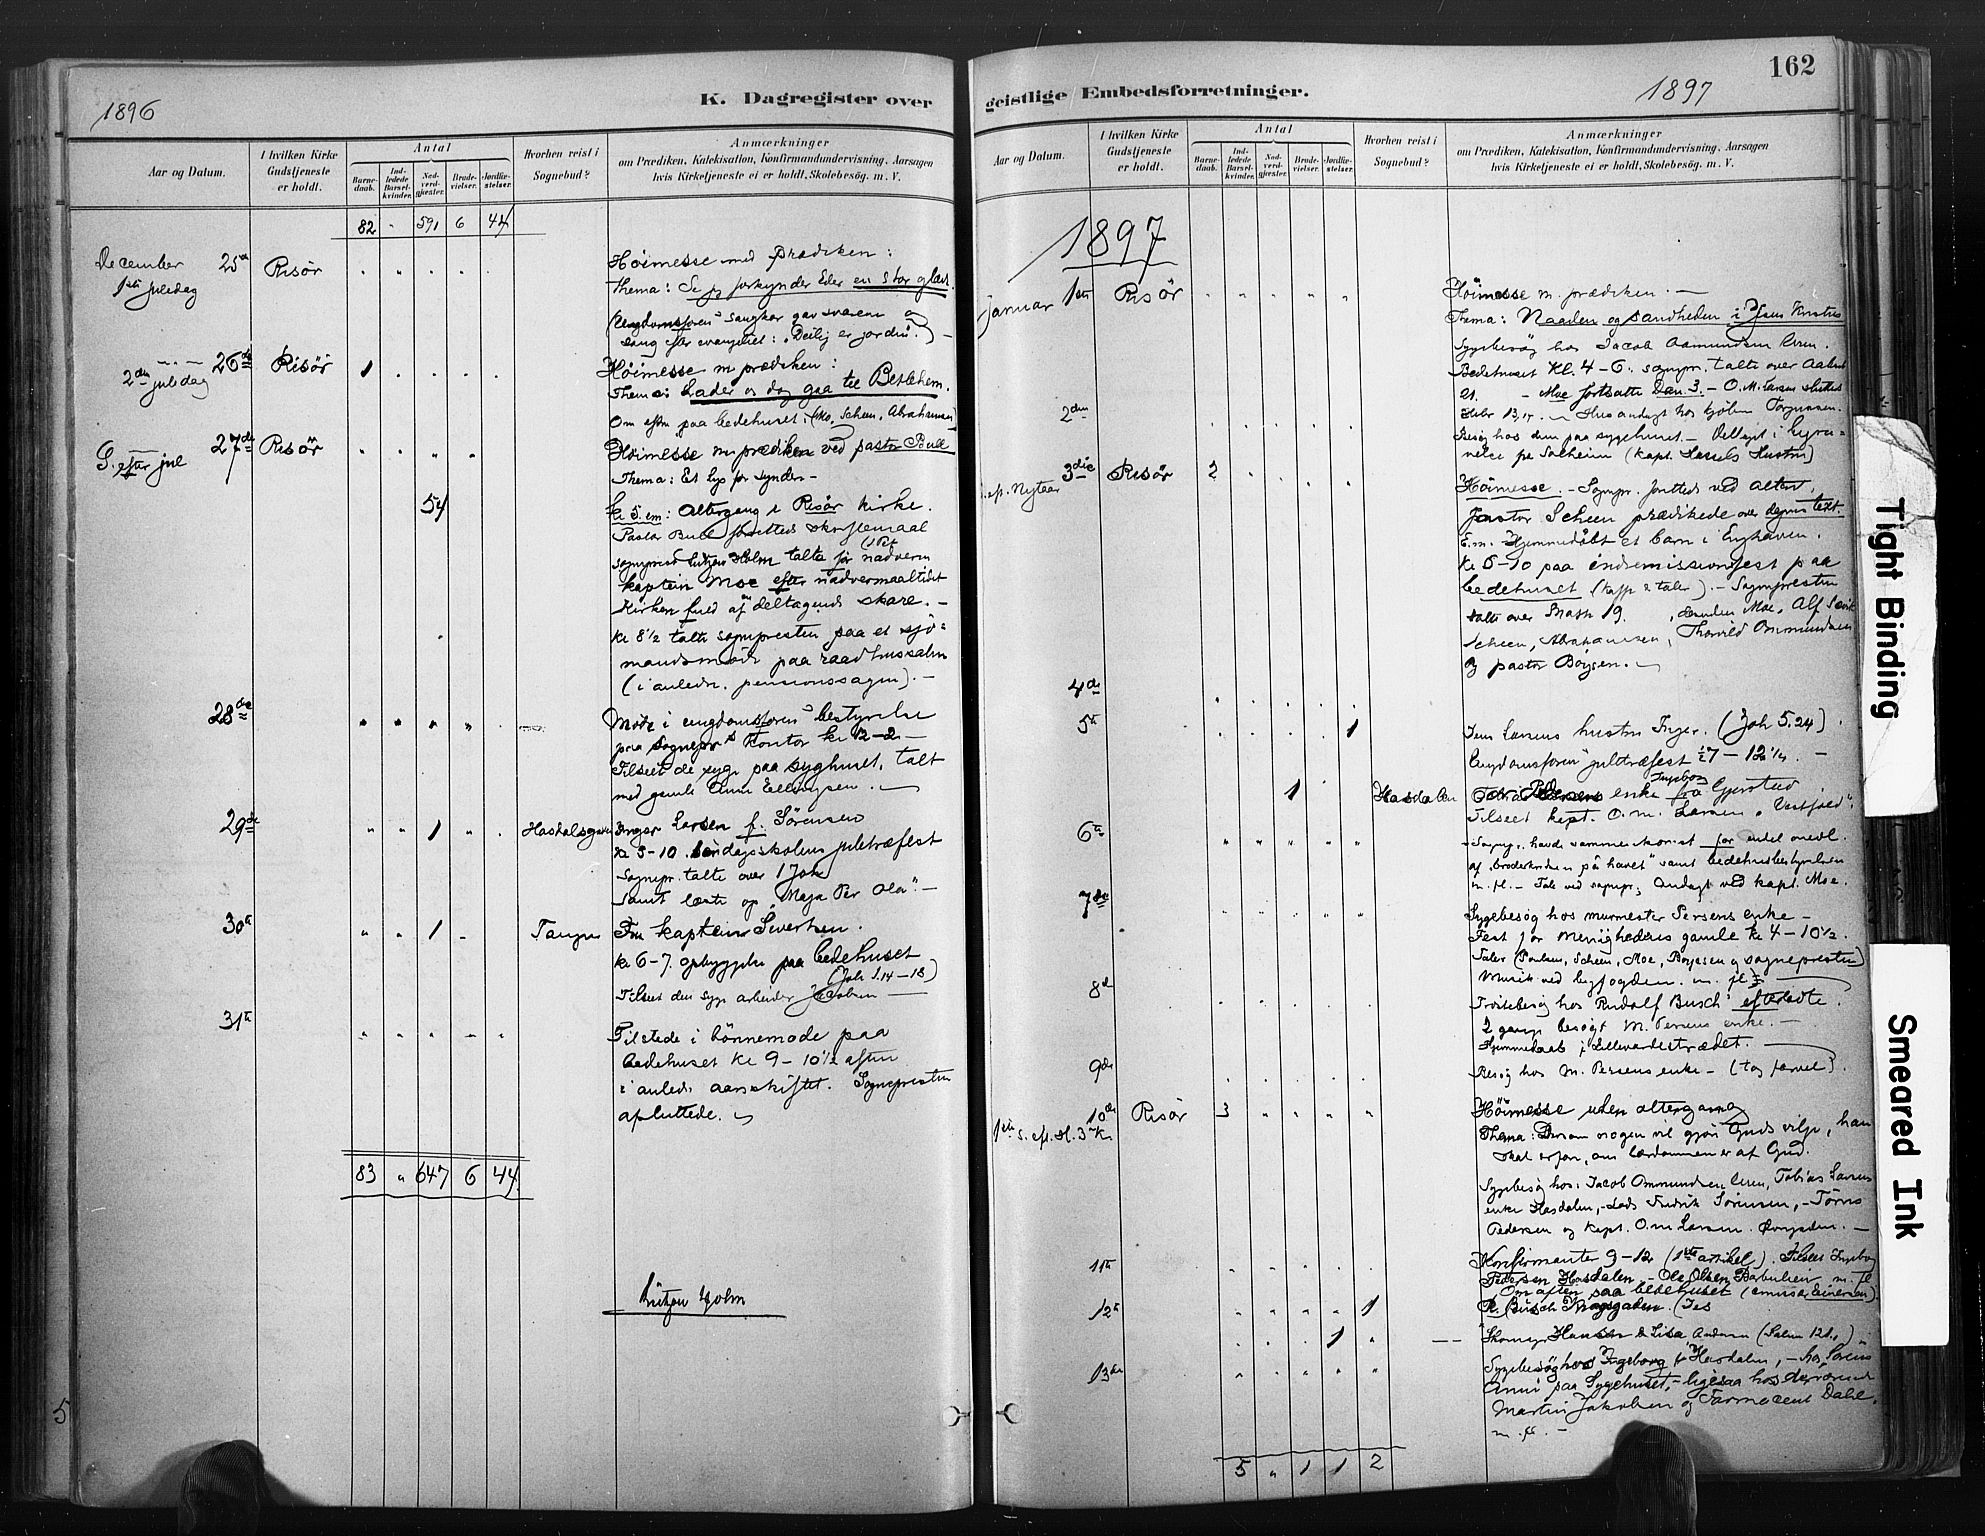 1896
K. Dagregister over
Aar og Datum.
I hvilken Kirke Gudstjeneste er holdt.
Antal
Barnedaab.
Indledede Barselkvinder.
Nadverdgjester.
Brudevielser.
Jordfæstelser.
Hvorhen reist i Sognebud?
Anmærkninger
om Prædiken, Katekisation, Konfirmandundervisning, Aarsagen
hvis Kirketjeneste ei er holdt, Skolebesög. m. V.
82 " 591 6 44
December 25de Risör
1ste juledag
Höimesse med prædiken:
Thema: Se jeg forkynder Eder en stor glæde.
(Ungdomsforen's sangkor gav svarene og
sang før evangeliet: "Deilig er jorden".) —
26de Risör 1
2den juledag
Höimesse m prædiken:
Thema: Lader os dog gaa til Betlehem.
Om eftm paa bedehuset. (Mo, Scheen, Abrahamsen)
27de Risör
S. efter jul
Höimesse m prædiken ved pastor Bull
Thema: Et lys for synder —
54
kl 5 em: Altergang i Risör kirke.
Pastor Bull forrettede skriftemaal
sognepræst Lützow Holm talte før nadveren
kaptein Moe efter nadvermaaltidet
Kirken fuld af deltagende skare. —
kl 8½ talte sognpresten paa et sjö=
mandsmöde paa raadhussalen
(i anledn. pensionssagen). —
28de
Möde i ungdomsforen's bestyrelse
paa sognepr's kontor kl 12-2 —
Tilseet de syge paa syghuset, talt
med gamle Anne Ellingsen. —
29de 1 Hasdalsgaden
Inger Larsen f. Sörensen
kl 5-10. Söndagsskolens juletræfest
Sognepr. talte over 1 Joh
Samt læste op "Maja Per Ola". —
30te 1 Tangen
Fru kaptein Sivertsen.
kl 6-7. opbyggelse paa bedehuset
(Joh 1.14-18)
Tilseet den syge arbeider Jacobsen —
31te
Tilstede i bönnemöde paa
bedehuset kl 9-10½ aften
i anledn aarsskiftet. Sognepresten
afsluttede.
83 " 647 6 44
Lützow Holm
5
geistlige Embedsforretninger.
1897
162
Aar og Datum.
I hvilken Kirke Gudstjeneste er holdt.
Antal
Barnedaab.
Indledede Barselkvinder.
Nadverdgjester.
Brudevielser.
Jordfæstelser.
Hvorhen reist i Sognebud?
Anmærkninger
om Prædiken, Katekisation, Konfirmandundervisning, Aarsagen
hvis Kirketjeneste ei er holdt, Skolebesög. m. V.
1897
Januar 1ste Risör
Höimesse m. prædiken. —
Thema: Naaden og sandheden i Jesus Kristus
Sygebesög hos Jacob Aamundsen
Bedehuset Kl. 4-6. sognpr. talte over
21. — Moe fortsatte Dan. 3. — O. M. Larsen sluttede
2den
Hebr 13,17. — Husandagt hos kjöbm Torgersen.
Besög hos dem paa sygehuset. — Deltaget i
paa Solheim (kapt. Hustru)
3die Risör 2
S. ef. Nytaar
Höimesse. — Sognpr. forrettede ved alteret,
Pastor Scheen prædikede over dagens text.
E.m. Hjemmedöbt et barn i Enghaven.
kl 5-10 paa indremissionsfest paa
bedehuset (kaffe & taler). — Sognpresten
talte over Math 19. , desuden Moe, Alf
Scheen, Abrahamsen, Thorvild Ommundsen
og pastor Böyesen. —
4de
5te 1
Jens Larsens hustru Inger. (Joh 5.24).
Ungdomsforen juletræfest ½7 — 12¼. —
1 Hasdalen
enke Ingeborg fra Gjerstad.
Tilseet kapt. O. M. Larsen "Vestfold".
6te
Sognepr. havde sammenkomst for endel medl.
af "Broderkredsen på havet" samt bedehusbestyrelsen
m. fl. — Tale ved sognpr; Andagt ved kapt. Moe.
7de
Sygebesög hos murmester Persens enke —
Fest for Menighedens gamle kl 4-10½.
Taler (Poulsen, Scheen, Moe, Böyesen og sognepresten)
Musik ved byfogden. m. fl.
8de
Tröstebesög hos Rudolf Busch' efterladte.
2 gange besögt M. Persens enke. —
Hjemmedaab i Lillevardestrædet. —
9de
Besög hos M. Persens enke — (tog farvel).
10de Risör 3
1ste s. ef. H. 3 K.
Höimesse uden altergang
Thema: Dersom nogen vil gjöre Guds vilje, han
skal erfare, om lærdommen er af Gud.
Sygebesög hos: Jacob Ommundsen, Tobias Larsens
enke Hasdalen, — Lods Fredrik Sörensen, — Törres
Pedersen og kapt. O. M. Larsen. —
11te
Konfirmanter 9-12 (1ste artikel). Tilseet Ingeborg
Pedersen Hasdalen, — Ole Olsen Barbulien m. fl
Om aften paa bedehuset (emissær Einersen).
12te 1
R. Busch Kragsgaden. (Jes
1
Skomager Hansen & Lisa Andersen (Salm 121.) —
13de
Sygebesög hos Ingeborg f Hasdalen, — hos Sörens
Anne paa Sygehuset, — ligesaa hos derværende
Martin Jakobsen og Farmaceut Dahl.
m. fl. —
5 " 1 1 2
Tight Binding
Smeared Ink